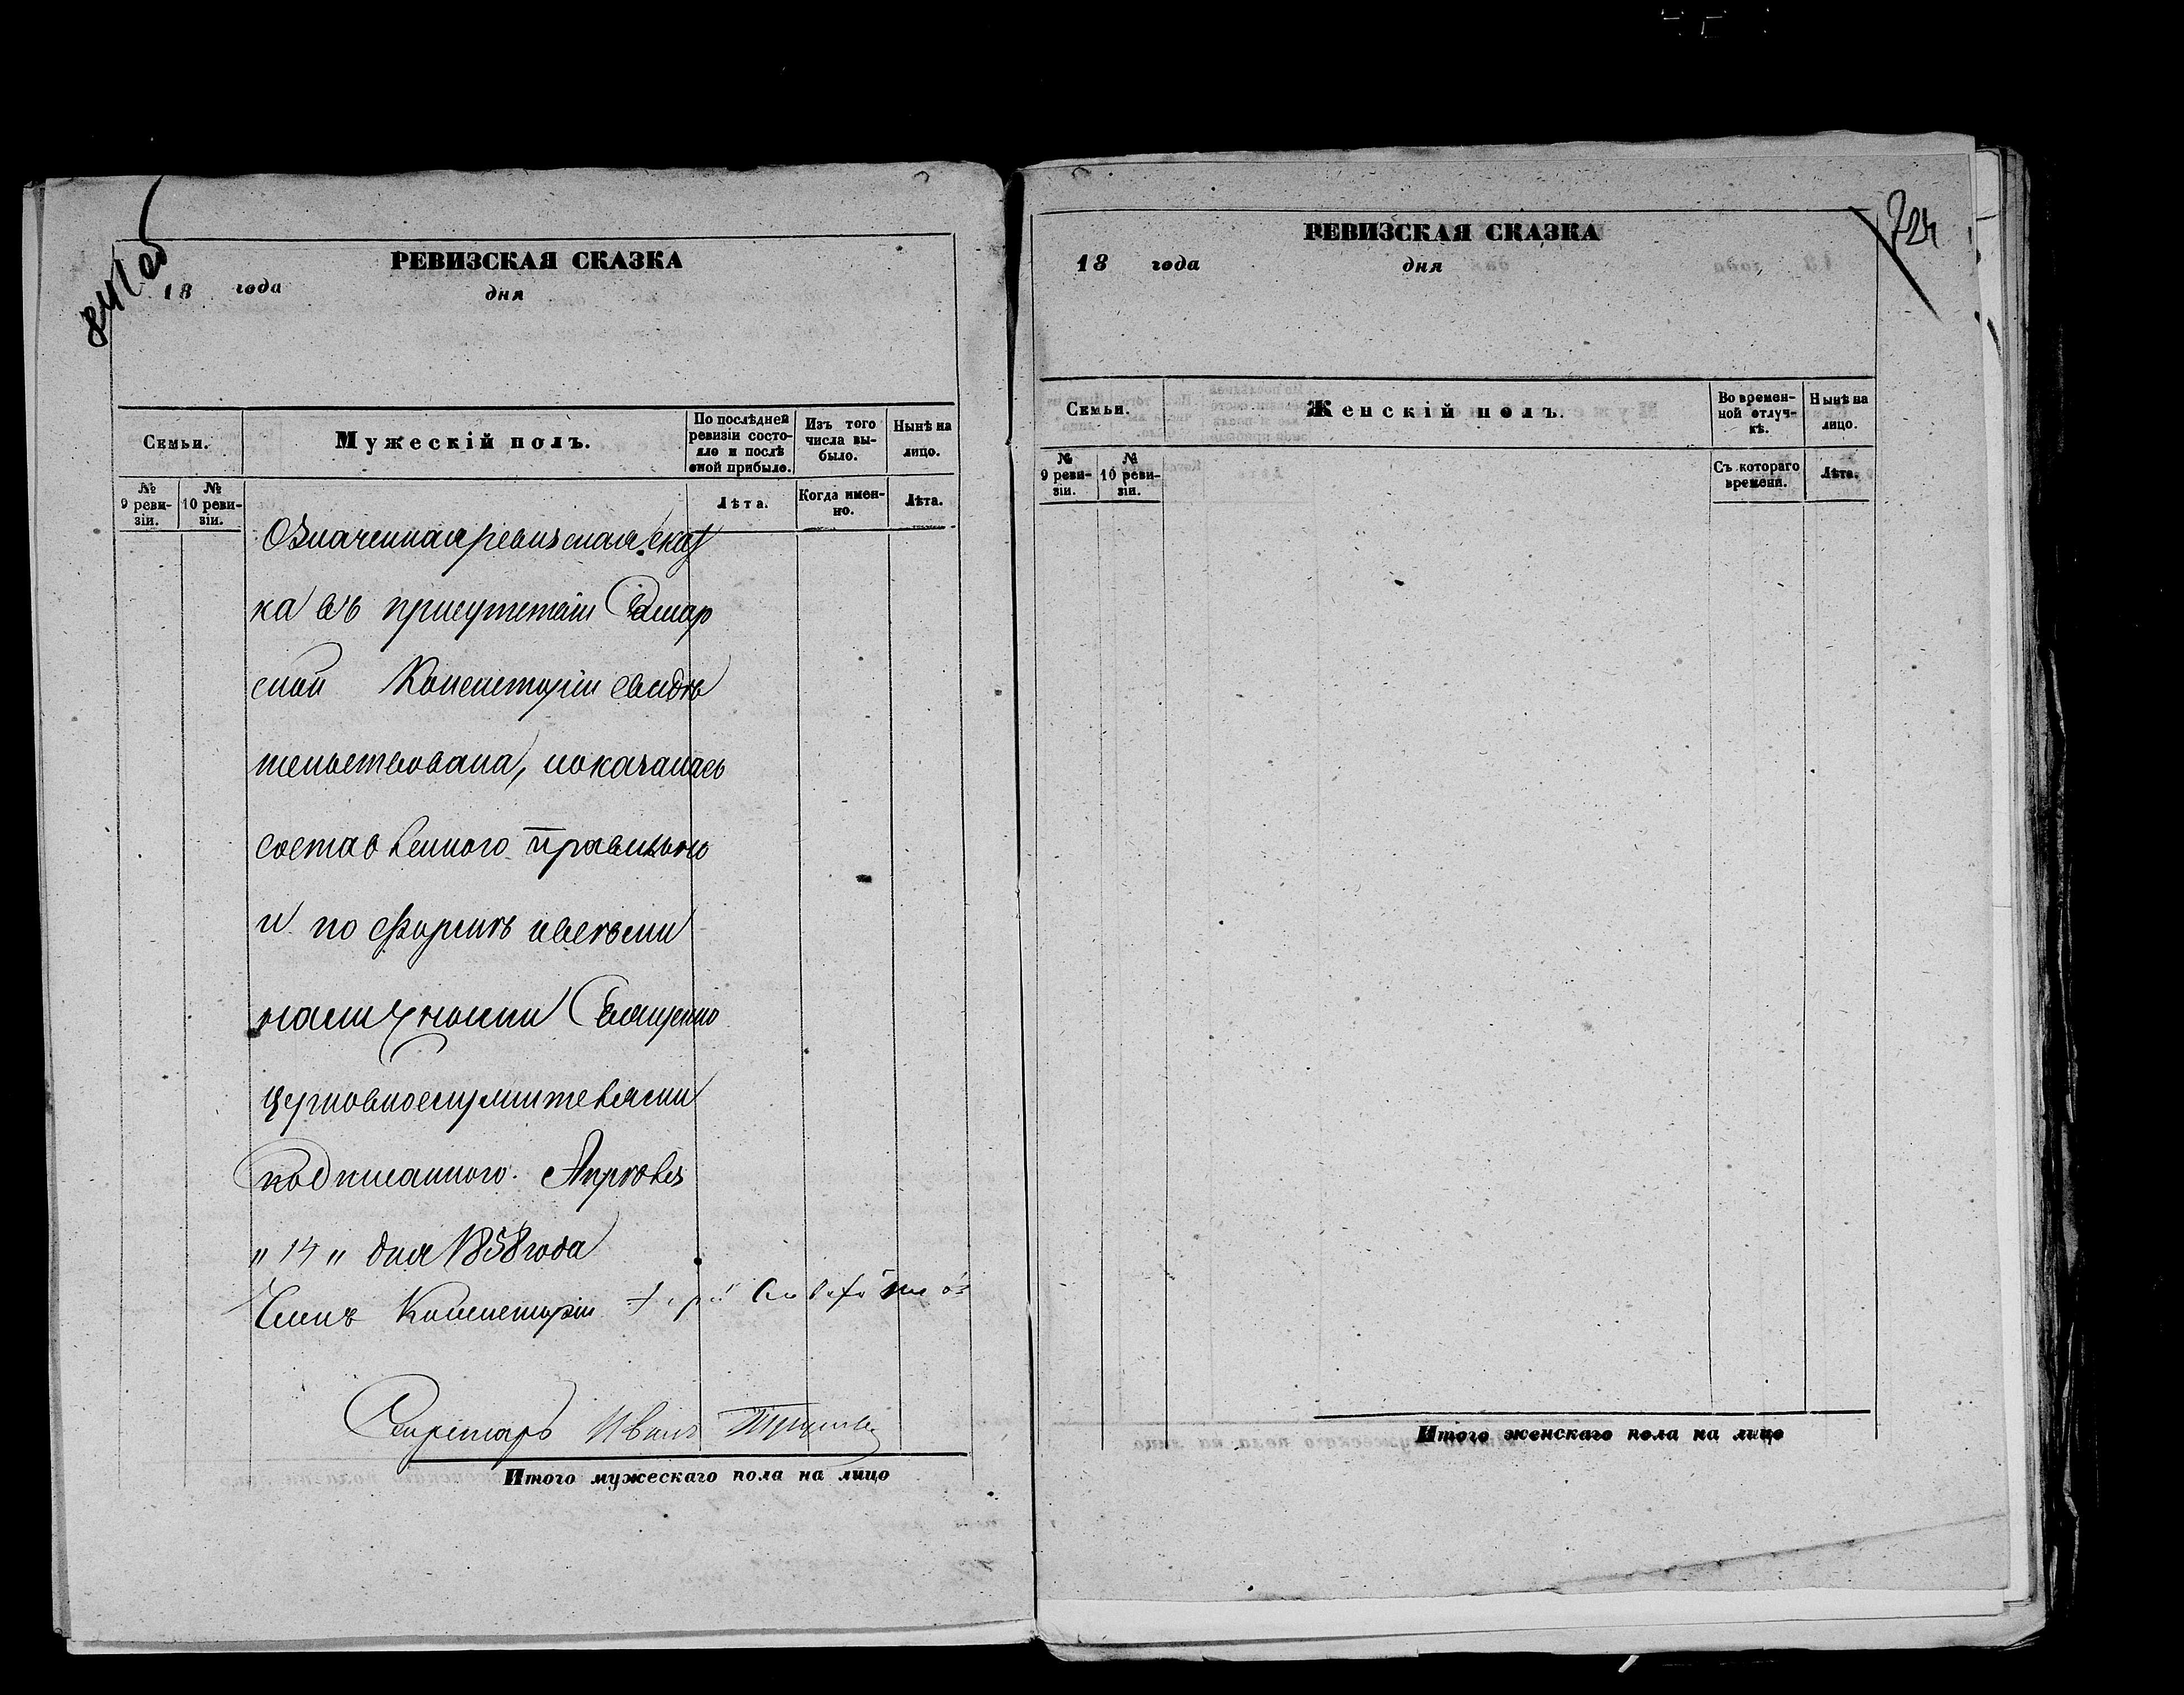 841 об
РЕВИЗСКАЯ СКАЗКА
18 года дня
Семьи.
Мужескій полъ.
По послѣдней ревизіи состояло и послѣ оной прибыло.
Изъ того числа выбыло.
Нынѣ на лицо.
№ 9 ревизіи.
№ 10 ревизіи.
Лѣта.
Когда именно.
Лѣта.
Означенная ревизская сказ
ка въ присутствіи Самар
ской Консисторіи свидѣ
тельствована, показалась
составленною правильно
и по формѣ и всѣми
наличными Священно
церковнослужителями
подписанною. Апрѣля
„ 14 „ дня 1858 года
Членъ Консисторіи
Секретарь Иванъ
Итого мужескаго пола на лицо
724
РЕВИЗСКАЯ СКАЗКА
18 года дня
Семьи.
Женскій полъ.
Во временной отлучкѣ.
Нынѣ на лицо.
№ 9 ревизіи.
№ 10 ревизіи.
Съ котораго времени.
Лѣта.
Итого женскаго пола на лицо